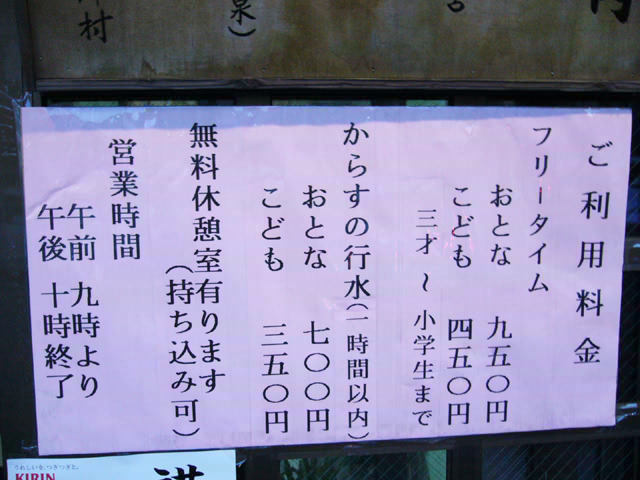 ご利用料金
フリータイム
おとな 九五〇円
こども 四五〇円
三才~小学生まで
からすの行水(一時間以内)
おとな 七〇〇円
こども 三五〇円
無料休憩室有ります
(持ち込み可)
営業時間
午前 九時より
午後 十時終了
泉)
村
内
うれしいを、つぎつぎと。
KIRIN